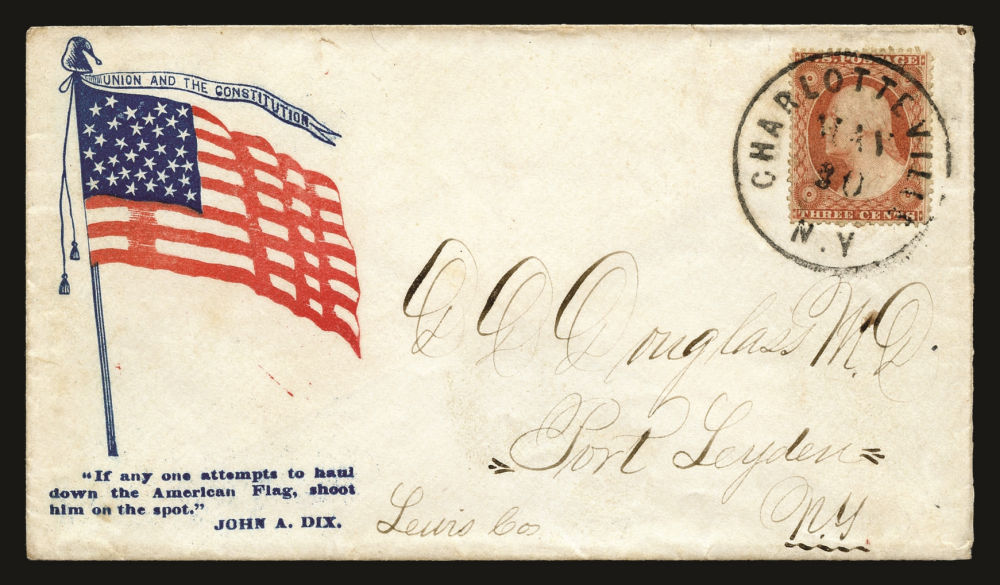 UNION AND THE CONSTITUTION
U.S. POSTAGE
THREE CENTS
CHARLOTTEVILLE
MAY
30
N.Y
Douglass M.D.
Port Leyden
Lewis Co.
N.Y
"If any one attempts to haul
down the American Flag, shoot
him on the spot."
JOHN A. DIX.